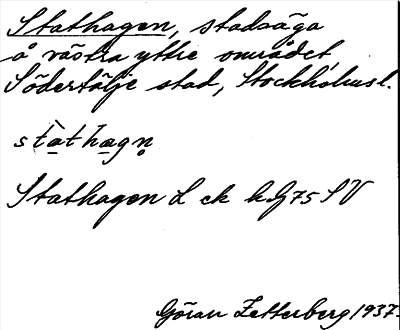 Stathagen, stadsäga
å västra yttre området,
Södertälje stad, Stockholms l.
stàthagn̥
Stathagen L ck h.G75 SV
Göran Zetterberg 1937.